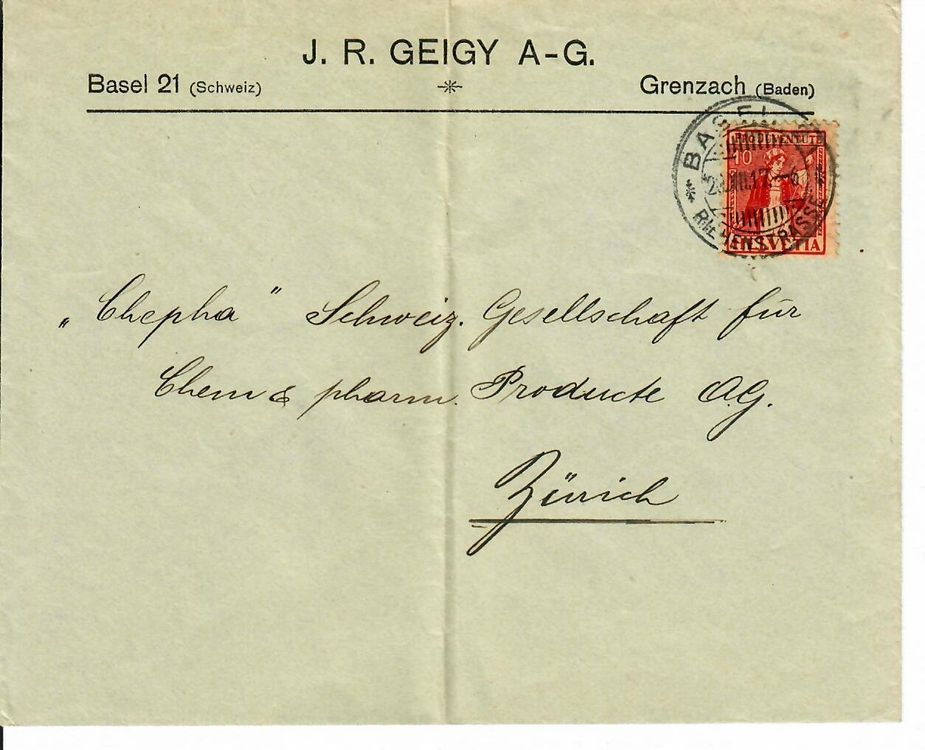 J. R. GEIGY A-G.
Basel 21 (Schweiz)
Grenzach (Baden)
BASEL
PRO JUVENTUTE
10
17
HELVETIA
„Chepha" Schweiz. Gesellschaft für
Chem & pharm. Producte AG.
Zürich